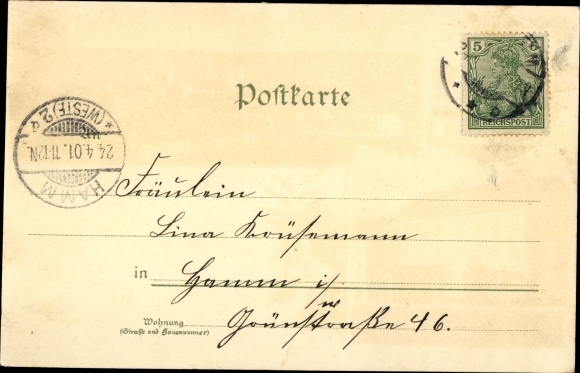 Postkarte
5
REICHSPOST
HAMM
(WESTF) 2
24.4.01. 11-12N.
Fräulein
Lina Krüsemann
in Hamm i/w
Wohnung
(Straße und Hausnummer)
Grünstraße 46.